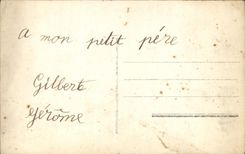 a mon petit père
Gilbert
Jérôme